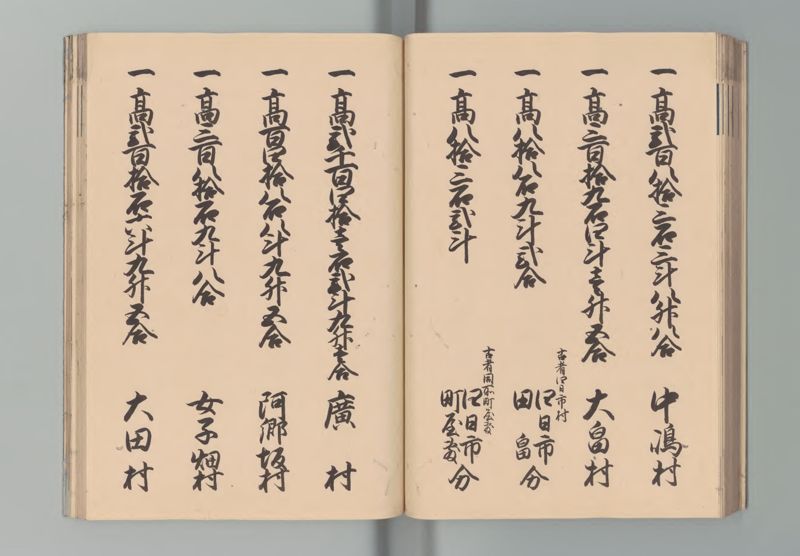 一高弐百八拾三石三斗八升八合 中嶋村
一高三百拾九石四斗壱升五合 大畠村
古者四日市村
一高八拾八石九斗弐合 四日市分
田畠
古者同所町屋敷
一高八拾三石弐斗 四日市分
町屋敷
一高弐千百四拾壱石弐斗九升壱合 廣村
一高百四拾八石八斗九升五合 阿郷坂村
一高三百八拾石九斗八合 女子畑村
一高弐百拾石六斗九升五合 大田村